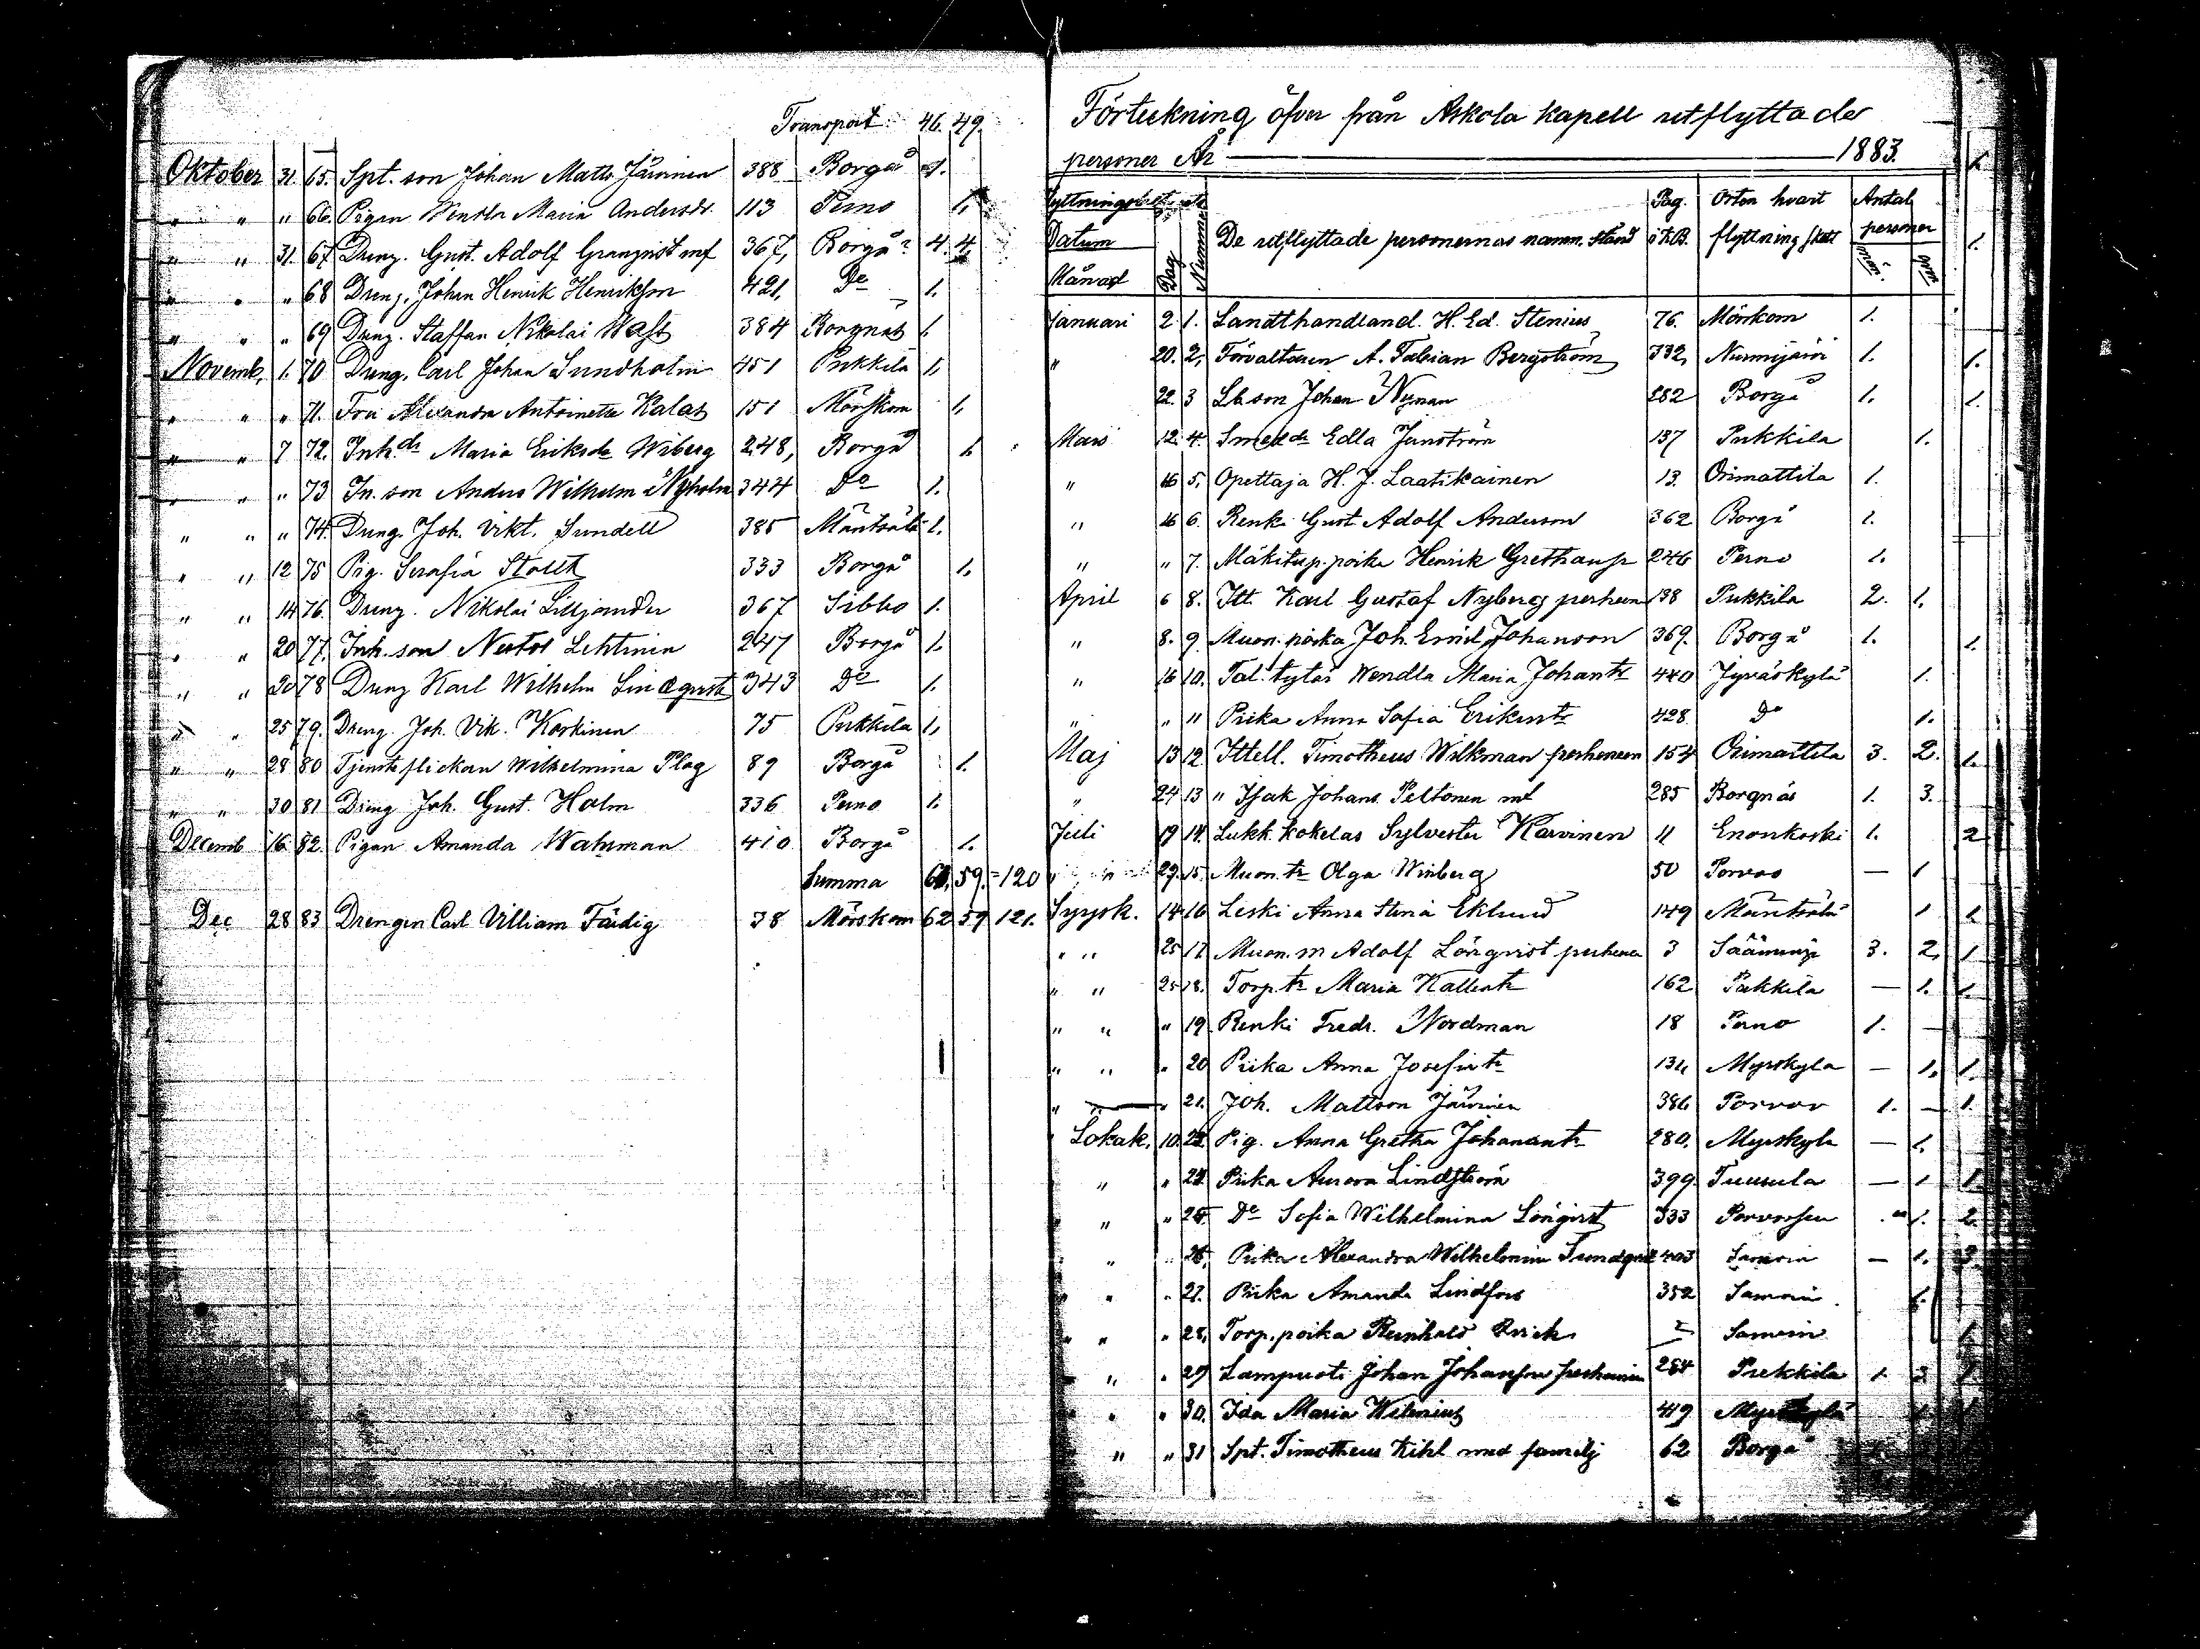 Transport 46. 49.
Oktober 31. 65. Spt. son Johan Matts Järvinen 388 Borgå 1.
" " " 66. Pigan Wendla Maria Andersdr. 113 Perno 1.
" " 31. 67 Dreng. Gust. Adolf Granqvist mf 367, Borgå 4. 4.
" " " 68 Dreng. Johan Henrik Henriksson 421, Do 1.
" " " 69 Dreng. Staffan Nikolai 384 Borgnäs 1.
Novemb. 1. 70 Dreng. Carl Johan Sundholm 451 Pukkila 1.
" " " 71. Fru Alexandra Antoinette Kalas 151 Mörskom 1.
" " 7 72. Inh.dr Maria Eriksdr Wiberg 248, Borgå 1.
" " " 73 In. son Anders Wilhelm Nyholm 344 Do 1.
" " " 74. Dreng. Joh. Vikt. Sundell 385 Mäntsälä 1.
" " 12 75 Pig. Serafia Stollt 333 Borgå 1.
" " 14 76. Dreng. Nikolai Liljander 367 Sibbo 1.
" " 20 77. Inh. son Nestor Lehtinen 247 Borgå 1.
" " 20 78 Dreng Karl Wilhelm Lindqvist 343 Do 1.
" " 25 79. Dreng. Joh. Vik. Korkinen 75 Pukkila 1.
" " 28 80 Tjensteflickan Wilhelmina Plag 89 Borgå 1.
" " 30 81 Dreng Joh. Gust. Holm 336 Perno 1.
Decemb 16. 82. Pigan Amanda Wahrman 410 Borgå 1.
Summa 61. 59. = 120
Dec 28 83 Drengen Carl Villiam Färdig 38 Mörskom 62 59 121.
Förteckning öfver från Askola kapell utflyttade
personer År 1883.
Datum Månad Dag Nummer De utflyttade personernas namn, stånd Pag. i K.B. Orten hvart flyttning skett Antal personer
Januari 2. 1. Landthandland. H. Ed. Stenius 76. Mörskom 1.
" 20. 2. Förvaltaren A. Fabian Bergström 332, Nurmijärvi 1.
22. 3 Lb son Johan Nyman 282 Borgå 1.
Mars 12. 4. Smeddr Edla Jernström 137 Pukkila 1.
" 16 5. Opettaja H. J. Laatikainen 13. Orimattila 1.
" 16 6. Renki Gust Adolf Anderson 362 Borgå 1.
" " 7. Mäkitup. poika Henrik 246 Perno 1.
April 6 8. Itt. Karl Gustaf Nyberg perheen 138 Pukkila 2. 1.
" 8. 9. Muon. poika Joh. Emil Johanson 369. Borgå 1.
" 16 10. Tal. tytär Wendla Maria Johantr 440 Jyväskylä 1.
" " 11 Piika Anna Sofia Erikintr 428 Do 1.
Maj 13 12 Ittell. Timotheus Wilkman perheneen 154 Orimattila 3. 2.
" 24 13 " Isak Johans. Peltonen mf 285 Borgnäs 1. 3.
Juli 19 14. Lukk. kokelas Sylvester Karvinen 11 Enonkoski 1.
" " 29. 15. Muon. tr Olga Winberg 50 Porvoo — 1
Syysk. 14 16 Leski Anna Stina Eklund 149 Mäntsälä 1
" " 25 17. Muon. m Adolf Lönqvist perheneen 3 Sääminge 3. 2.
" " 25 18. Torp. tr Maria Kallentr 162 Pukkila — 1.
" " " 19. Renki Fredr. Nordman 18 Perno 1. —
" " " 20 Piika Anna Josefintr Myrskylä — 1.
" " 21. Joh. Mattson Järvinen 386 Porvoo 1. —
Lokak. 10. Pig. Anna Gretha Johanantr 280. Myrskylä — 1.
" " 24. Piika Aurora Lindström 399 Tuusula — 1
" " 25 Do Sofia Wilhelmina Lönqvist 333 Porvoosen 1.
" " 26. Piika Alexandra Wilhelmina Sundqvist 403 Samoin — 1.
" " " 27. Piika Amanda Lindfors 352 Samoin 1.
" " " 28. Torp. poika Reinhold Samoin
" " 29 Lampuoti Johan Johansson perheineen 284 Pukkila 1. 3
" " 30. Ida Maria Wilenius 419 Myrskylä
" " 31 Spt. Timotheus Kihl med familj 62 Borgå